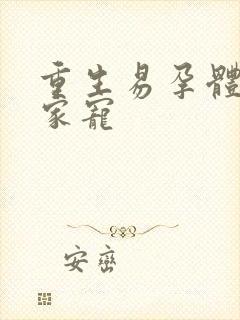 重生易孕體
家寵
安巒